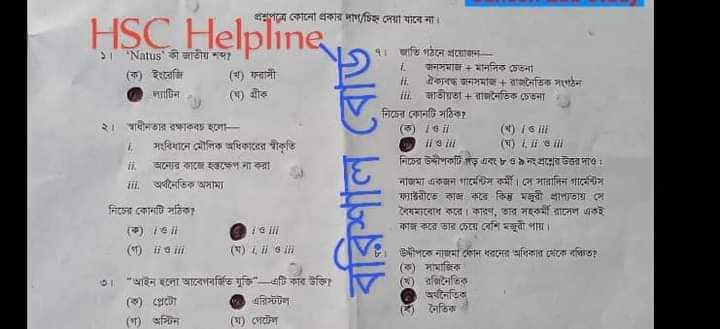 প্রশ্নপত্রে কোনো প্রকার দাগ/চিহ্ন দেয়া যাবে না।
HSC Helpline
বরিশাল বোর্ড
১। 'Natus' কী জাতীয় শব্দ?
(ক) ইংরেজি (খ) ফরাসী
ল্যাটিন (ঘ) গ্রীক
২। স্বাধীনতার রক্ষাকবচ হলো—
i. সংবিধানে মৌলিক অধিকারের স্বীকৃতি
ii. অন্যের কাজে হস্তক্ষেপ না করা
iii. অর্থনৈতিক অসাম্য
নিচের কোনটি সঠিক?
(ক) i ও ii i ও iii
(গ) ii ও iii (ঘ) i, ii ও iii
৩। "আইন হলো আবেগবর্জিত যুক্তি"—এটি কার উক্তি?
(ক) প্লেটো এরিস্টটল
(গ) অস্টিন (ঘ) গেটেল
৭। জাতি গঠনে প্রয়োজন—
i. জনসমাজ + মানসিক চেতনা
ii. ঐক্যবদ্ধ জনসমাজ + রাজনৈতিক সংগঠন
iii. জাতীয়তা + রাজনৈতিক চেতনা
নিচের কোনটি সঠিক?
(ক) i ও ii (খ) i ও iii
ii ও iii (ঘ) i, ii ও iii
নিচের উদ্দীপকটি পড় এবং ৮ ও ৯ নং প্রশ্নের উত্তর দাও :
নাজমা একজন গার্মেন্টস কর্মী। সে সারাদিন গার্মেন্টস
ফ্যাক্টরীতে কাজ করে কিন্তু মজুরী প্রাপ্যতায় সে
বৈষম্যবোধ করে। কারণ, তার সহকর্মী রাসেল একই
কাজ করে তার চেয়ে বেশি মজুরী পায়।
৮। উদ্দীপকে নাজমা কোন ধরনের অধিকার থেকে বঞ্চিত?
(ক) সামাজিক
(খ) রাজনৈতিক
অর্থনৈতিক
(ঘ) নৈতিক